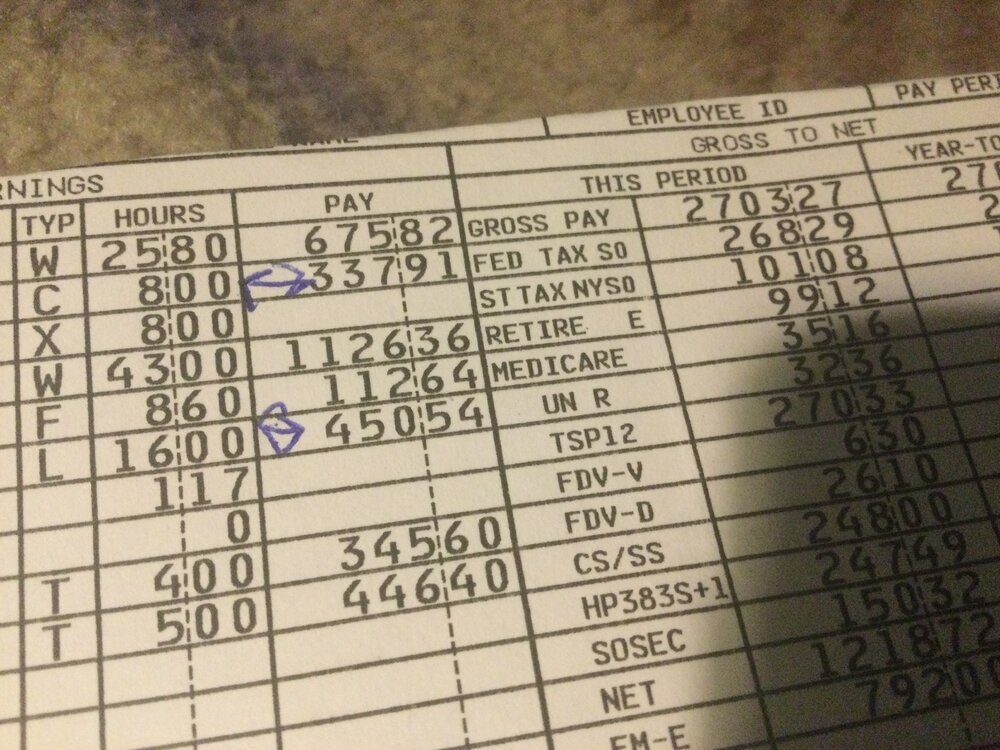 EMPLOYEE ID PAY PERI
RNINGS GROSS TO NET
TYP HOURS PAY THIS PERIOD YEAR-TO
W 2580 67582 GROSS PAY 270327 270
C 800 33791 FED TAX S0 26829
X 800 ST TAX NYS0 10108
W 4300 112636 RETIRE E 9912
F 860 11264 MEDICARE 3516
L 1600 45054 UN R 3236
117 TSP12 27033
0 FDV-V 630
T 400 34560 FDV-D 2610
T 500 44640 CS/SS 24800
HP383S+1 24749
SOSEC 15032
NET 121872
EM-E 7920